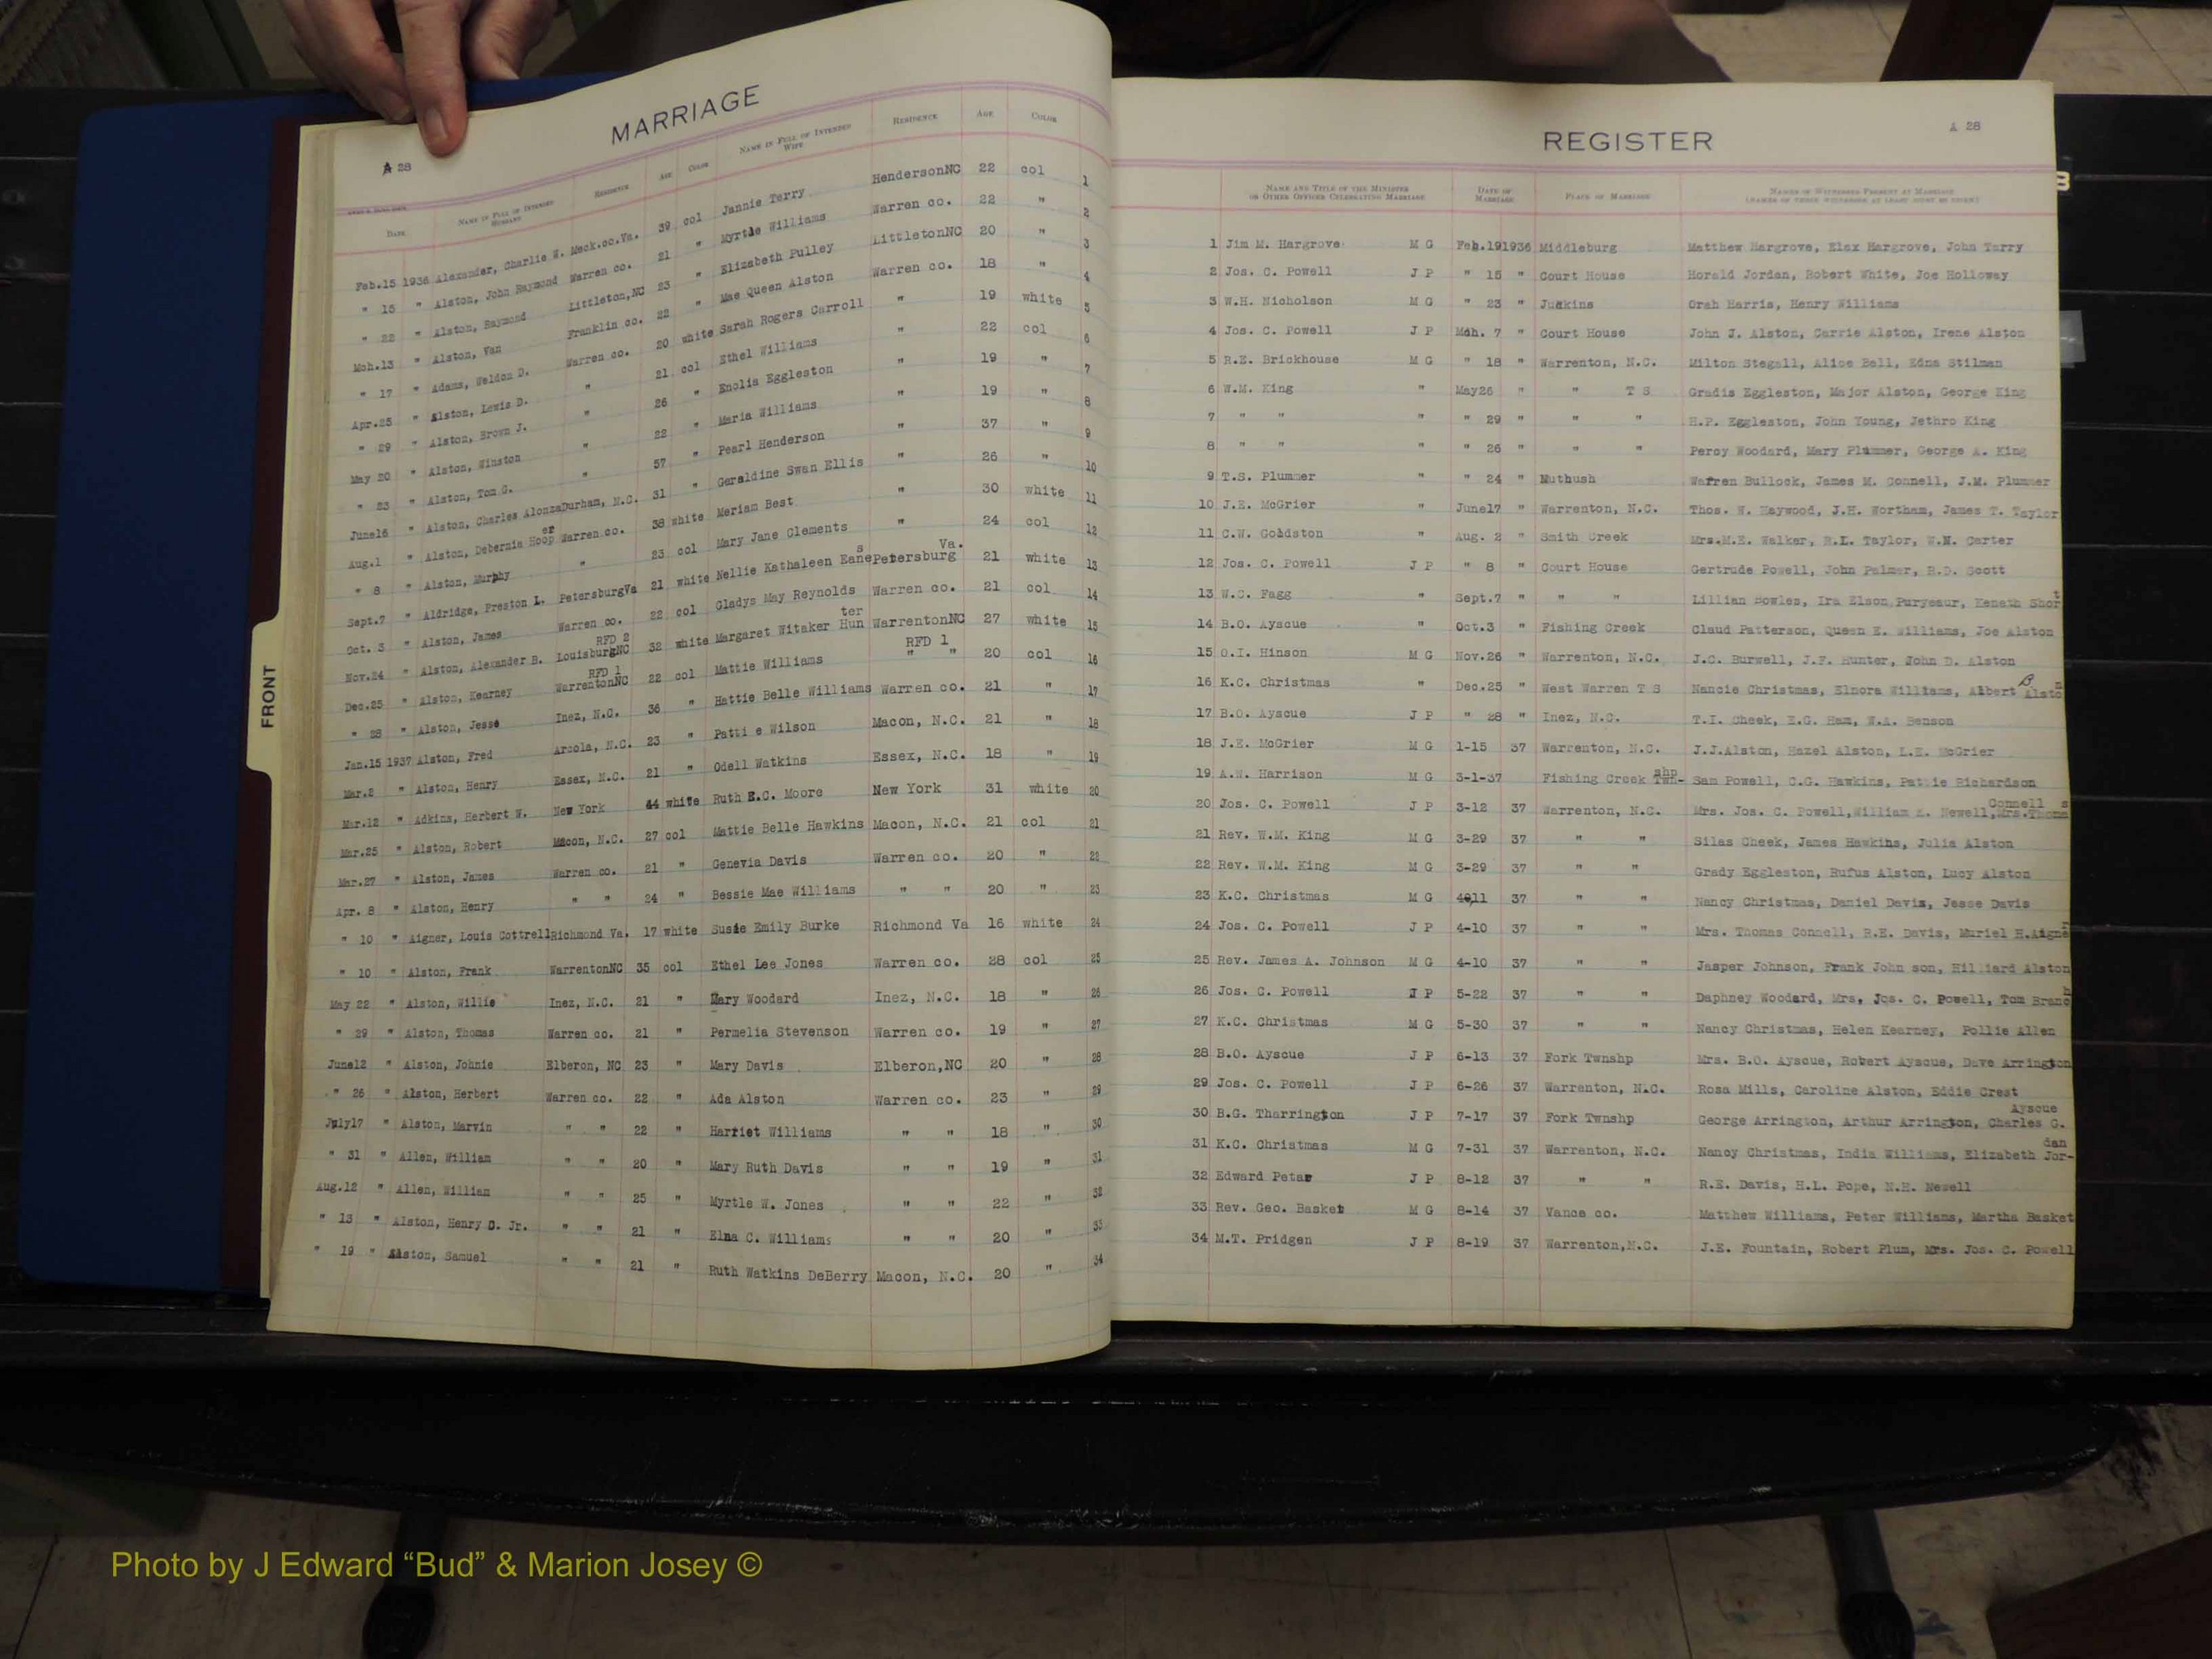 MARRIAGE
A 28
DATE NAME IN FULL OF INTENDED HUSBAND RESIDENCE AGE COLOR NAME IN FULL OF INTENDED WIFE RESIDENCE AGE COLOR
Feb.15 1936 Alexander, Charlie W. Meck.co.Va. 39 col Jannie Terry HendersonNC 22 col 1
" 15 " Alston, John Raymond Warren co. 21 " Myrtle Williams Warren co. 22 " 2
" 22 " Alston, Raymond Littleton,NC 23 " Elizabeth Pulley LittletonNC 20 " 3
Mch.13 " Alston, Van Franklin co. 22 " Mae Queen Alston Warren co. 18 " 4
" 17 " Adams, Weldon D. Warren co. 20 white Sarah Rogers Carroll " 19 white 5
Apr.25 " Alston, Lewis D. " 21 col Ethel Williams " 22 col 6
" 29 " Alston, Brown J. " 26 " Enolia Eggleston " 19 " 7
May 20 " Alston, Winston " 22 " Maria Williams " 19 " 8
" 23 " Alston, Tom G. " 57 " Pearl Henderson " 37 " 9
June16 " Alston, Charles AlonzaDurham, N.C. 31 " Geraldine Swan Ellis " 26 " 10
Aug.1 " Alston, Debernia Hooper Warren co. 38 white Meriam Best " 30 white 11
" 8 " Alston, Murphy " 23 col Mary Jane Clements " 24 col 12
Sept.7 " Aldridge, Preston L. PetersburgVa 21 white Nellie Kathaleen Eanes Petersburg Va. 21 white 13
Oct. 3 " Alston, James Warren co. 22 col Gladys May Reynolds Warren co. 21 col 14
Nov.24 " Alston, Alexander B. RFD 2 LouisburgNC 32 white Margaret Witaker Hunter WarrentonNC 27 white 15
Dec.25 " Alston, Kearney RFD 1 WarrentonNC 22 col Mattie Williams RFD 1 " " 20 col 16
" 28 " Alston, Jesse Inez, N.C. 36 " Hattie Belle Williams Warren co. 21 " 17
Jan.15 1937 Alston, Fred Arcola, N.C. 23 " Patti e Wilson Macon, N.C. 21 " 18
Mar.2 " Alston, Henry Essex, N.C. 21 " Odell Watkins Essex, N.C. 18 " 19
Mar.12 " Adkins, Herbert W. New York 44 white Ruth E.C. Moore New York 31 white 20
Mar.25 " Alston, Robert Macon, N.C. 27 col Mattie Belle Hawkins Macon, N.C. 21 col 21
Mar.27 " Alston, James Warren co. 21 " Genevia Davis Warren co. 20 " 22
Apr. 8 " Alston, Henry " " 24 " Bessie Mae Williams " " 20 " 23
" 10 " Aigner, Louis CottrellRichmond Va. 17 white Susie Emily Burke Richmond Va 16 white 24
" 10 " Alston, Frank WarrentonNC 35 col Ethel Lee Jones Warren co. 28 col 25
May 22 " Alston, Willie Inez, N.C. 21 " Mary Woodard Inez, N.C. 18 " 26
" 29 " Alston, Thomas Warren co. 21 " Permelia Stevenson Warren co. 19 " 27
June12 " Alston, Johnie Elberon, NC 23 " Mary Davis Elberon,NC 20 " 28
" 26 " Alston, Herbert Warren co. 22 " Ada Alston Warren co. 23 " 29
July17 " Alston, Marvin " " 22 " Harriet Williams " " 18 " 30
" 31 " Allen, William " " 20 " Mary Ruth Davis " " 19 " 31
Aug.12 " Allen, Willian " " 25 " Myrtle W. Jones " " 22 " 32
" 13 " Alston, Henry C. Jr. " " 21 " Elna C. Williams " " 20 " 33
" 19 " Alston, Samuel " " 21 " Ruth Watkins DeBerry Macon, N.C. 20 " 34
REGISTER
A 28
NAME AND TITLE OF THE MINISTER OR OTHER OFFICER CELEBRATING MARRIAGE DATE OF MARRIAGE PLACE OF MARRIAGE NAMES OF WITNESSES PRESENT AT MARRIAGE
1 Jim M. Hargrove M G Feb.191936 Middleburg Matthew Hargrove, Elex Hargrove, John Terry
2 Jos. C. Powell J P " 15 " Court House Horald Jordan, Robert White, Joe Holloway
3 W.H. Nicholson M G " 23 " Judkins Orah Harris, Henry Williams
4 Jos. C. Powell J P Mch. 7 " Court House John J. Alston, Carrie Alston, Irene Alston
5 R.E. Brickhouse M G " 18 " Warrenton, N.C. Milton Stegall, Alice Ball, Edna Stilman
6 W.M. King " May26 " " T S Gradis Eggleston, Major Alston, George King
7 " " " " 29 " " " H.P. Eggleston, John Young, Jethro King
8 " " " " 26 " " " Percy Woodard, Mary Plummer, George A. King
9 T.S. Plummer " " 24 " Nutbush Warren Bullock, James M. Connell, J.M. Plummer
10 J.E. McGrier " June17 " Warrenton, N.C. Thos. W. Haywood, J.H. Wortham, James T. Taylor
11 C.W. Goldston " Aug. 2 " Smith Creek Mrs.M.E. Walker, R.L. Taylor, W.N. Carter
12 Jos. C. Powell J P " 8 " Court House Gertrude Powell, John Palmer, R.D. Scott
13 W.C. Fagg " Sept.7 " " " Lillian Bowles, Ira Elson Puryeaur, Keneth Short
14 B.O. Ayscue " Oct.3 " Fishing Creek Claud Patterson, Queen E. Williams, Joe Alston
15 O.I. Hinson M G Nov.26 " Warrenton, N.C. J.C. Burwell, J.F. Hunter, John D. Alston
16 K.C. Christmas " Dec.25 " West Warren T S Nancie Christmas, Elnora Williams, Albert B. Alston
17 B.O. Ayscue J P " 28 " Inez, N.C. T.I. Cheek, E.G. Ham, W.A. Benson
18 J.E. McGrier M G 1-15 37 Warrenton, N.C. J.J.Alston, Hazel Alston, L.E. McGrier
19 A.W. Harrison M G 3-1-37 Fishing Creek Twn-shp Sam Powell, C.G. Hawkins, Pattie Richardson
20 Jos. C. Powell J P 3-12 37 Warrenton, N.C. Mrs. Jos. C. Powell,William E. Newell,Mrs.Thomas Connell
21 Rev. W.M. King M G 3-29 37 " " Silas Cheek, James Hawkins, Julia Alston
22 Rev. W.M. King M G 3-29 37 " " Grady Eggleston, Rufus Alston, Lucy Alston
23 K.C. Christmas M G 4@11 37 " " Nancy Christmas, Daniel Davis, Jesse Davis
24 Jos. C. Powell J P 4-10 37 " " Mrs. Thomas Connell, R.E. Davis, Muriel H.Aigne
25 Rev. James A. Johnson M G 4-10 37 " " Jasper Johnson, Frank John son, Hilliard Alston
26 Jos. C. Powell J P 5-22 37 " " Daphney Woodard, Mrs, Jos. C. Powell, Tom Branch
27 K.C. Christmas M G 5-30 37 " " Nancy Christmas, Helen Kearney, Pollie Allen
28 B.O. Ayscue J P 6-13 37 Fork Twnshp Mrs. B.O. Ayscue, Robert Ayscue, Dave Arrington
29 Jos. C. Powell J P 6-26 37 Warrenton, N.C. Rosa Mills, Caroline Alston, Eddie Crest
30 B.G. Tharrington J P 7-17 37 Fork Twnshp George Arrington, Arthur Arrington, Charles G. Ayscue
31 K.C. Christmas M G 7-31 37 Warrenton, N.C. Nancy Christmas, India Williams, Elizabeth Jor-dan
32 Edward Petar J P 8-12 37 " " R.E. Davis, H.L. Pope, N.H. Newell
33 Rev. Geo. Basket M G 8-14 37 Vance co. Matthew Williams, Peter Williams, Martha Basket
34 M.T. Pridgen J P 8-19 37 Warrenton,N.C. J.E. Fountain, Robert Plum, Mrs. Jos. C. Powell
FRONT
Photo by J Edward “Bud” & Marion Josey ©